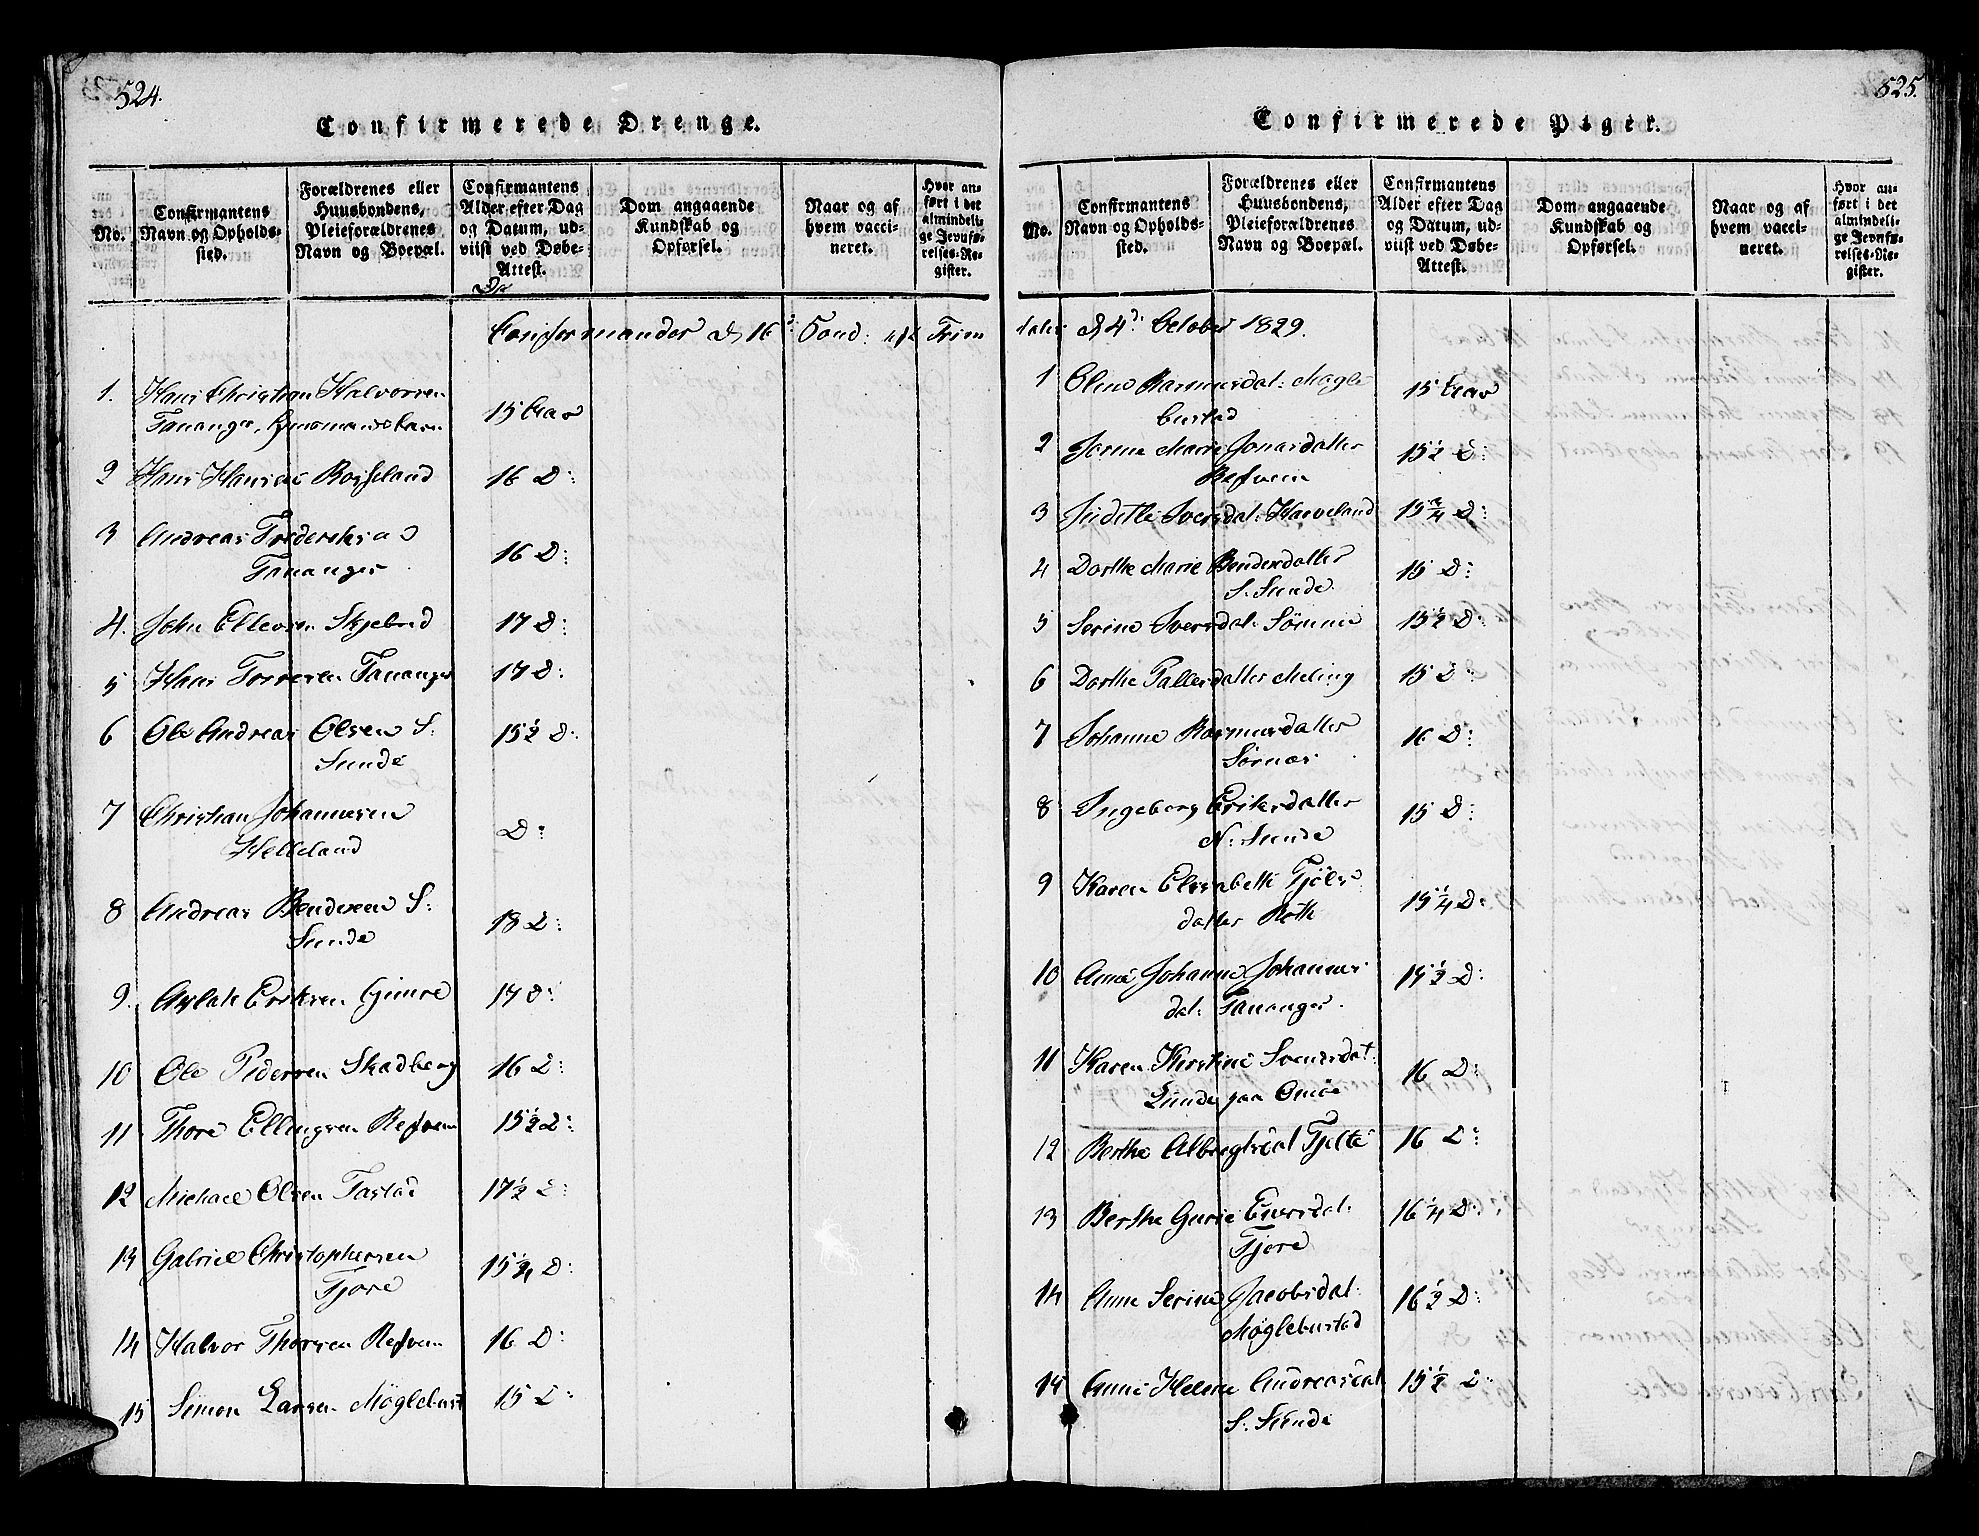 524.
Confirmerede Drenge.
No.
Confirmantens Navn og Opholdssted.
Forældrenes eller Huusbondens, Pleieforældrenes Navn og Boepæl.
Confirmantens Alder efter Dag og Datum, udviist ved Døbe-Attest.
Dom angaaende Kundskab og Opførsel.
Naar og af hvem vaccineret.
Hvor anført i det almindelige Jevnførelses-Register.
Confirmander d. 16d: Sønd: eft Trin
1. Hans Christian Halvorsen
Tananger, Huusmandsbarn
15 Aar
2 Hans Hansen Rosseland 16 D:
3 Andreas Frederiks
Tananger
16 D:
4. John Ellevsen Skjebred 17 D:
5 Hans Torresen Tananger 17 D:
6 Ole Andreas Olsen S:
Sunde
15½ D:
7 Christian Johannesen
Helleland
D:
8 Andreas Bendixen S:
Sunde
18 D:
9. Aslak Eriksen Gimre 17 D:
10 Ole Pedersen Skadberg 16 D:
11 Thore Ellingsen Refsvem 15½ D:
12 Michael Olsen Tastad 17½ D:
13 Gabriel Christophersen
Tjore
15¾ D:
14 Halvor Thorsen Refsvem 16 D:
15 Simon Larsen Møglebust 15 D:
525.
Confirmerede Piger.
No.
Confirmantens Navn og Opholdssted.
Forældrenes eller Huusbondens, Pleieforældrenes Navn og Boepæl.
Confirmantens Alder efter Dag og Datum, udviist ved Døbe-Attest.
Dom angaaende Kundskab og Opførsel.
Naar og af hvem vaccineret.
Hvor anført i det almindelige Jevnførelses-Register.
tatis d 4d: October 1829.
1 Oline Rasmusdal: Mogle
bustad
15 Aar
2 Marie Jonasdatter
Refsvem
15½ D:
3 Sversdal: Haveland 15¾ D:
4 Dorthe Marie Bendixdatter
S: Sunde
15 D:
5 Serine Sversdal: Sømme 15½ D:
6 Dorthe Pallesdatter Meling 15 D:
7 Johanne Rasmusdatter
Sørnes
16 D:
8 Ingeborg Eriksdatter
N: Sunde
15 D:
9 Karen Elisabeth Tjøls
datter Roth
15¼ D:
10 Anne Johanne Johannes
dal: Tananger.
15½ D:
11 Karen Kirstine Svensdat:
Sunde paa Omøe
16 D:
12 Berthe Tjelte 16 D:
13 Berthe Gurie Eversdal:
Tjore
16¼ D:
14 Anne Serine Jacobsdal:
Møglebustad
16½ D:
15 Anne Helene Andreasdal
S: Sunde
15½ D: